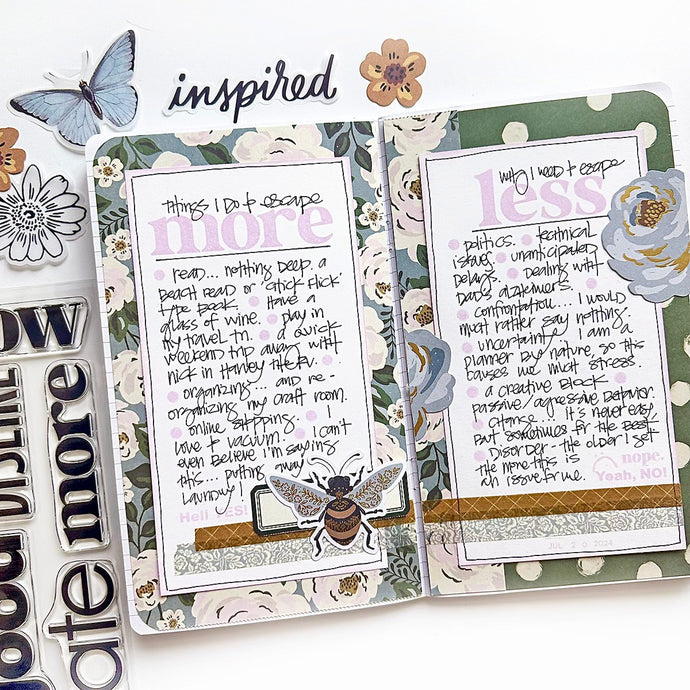 inspired
Things I Do to escape
more
read... nothing deep. a
Beach read or "chick flick"
type book. Have a
glass of wine. play in
my travel TN. a quick
weekend trip away with
Nick in Harvey the RV.
organizing... and re-
organizing my craft room.
online shopping. I
love to vacuum. I can't
even believe I'm saying
this... putting away
Laundry!
Hell YES!
why I need to escape
less
politics. Technical
issues. unanticipated
Delays. Dealing with
Dad's alzheimers.
confrontation... I would
much rather say nothing.
uncertainty I am a
planner by nature so this
causes me much stress.
a creative Block
passive/aggressive Behavior.
change... it's never easy,
But sometimes for the best.
Disorder - the older I get
the more this is
an issue for me.
nope.
Yeah, NO!
JUL 20 2024
OW
DISLIKE
more
ate